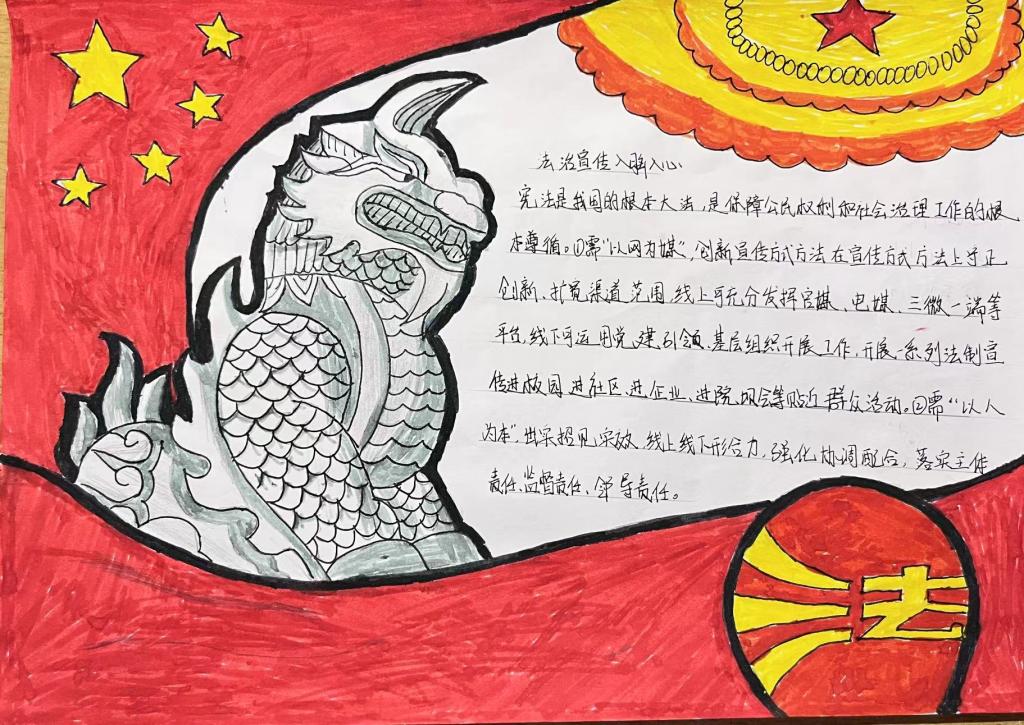 法治宣传入脑入心
宪法是我国的根本大法，是保障公民权利和社会治理工作的根
本尊循。①需“以网为媒”，创新宣传方式方法在宣传方式方法上守正
创新、扩宽渠道范围，线上可充分发挥官媒、电媒、三微一端等
平台，线下可运用党建引领、基层组织开展工作，开展一系列法制宣
传进校园、进社区、进企业、进院坝会等贴近群众活动。②需“以人
为本”，出实招见实效，线上线下形合力，强化协调配合，落实主体
责任、监督责任、领导责任。
法